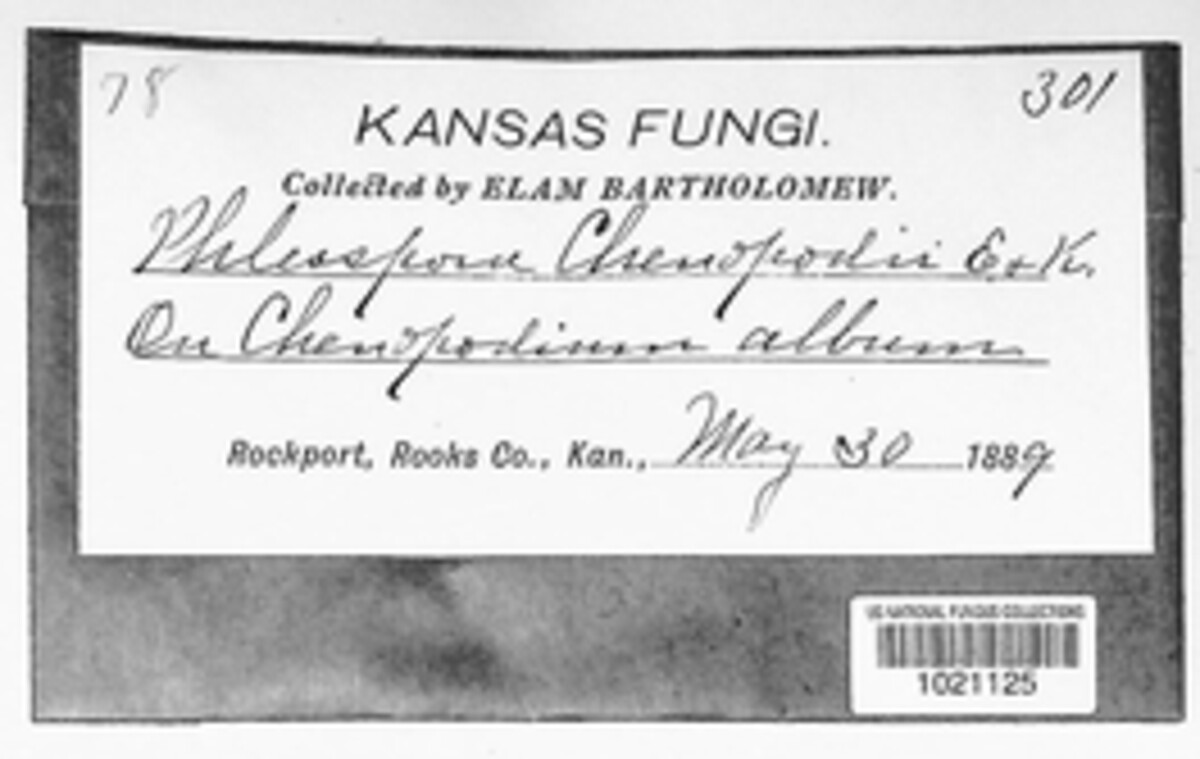 78
301
KANSAS FUNGI.
Collected by ELAM BARTHOLOMEW.
Phleospora Chenopodii E & K.
On Chenopodium album
Rockport, Rooks Co., Kan., May 30 1889
US NATIONAL FUNGUS COLLECTIONS
1021125